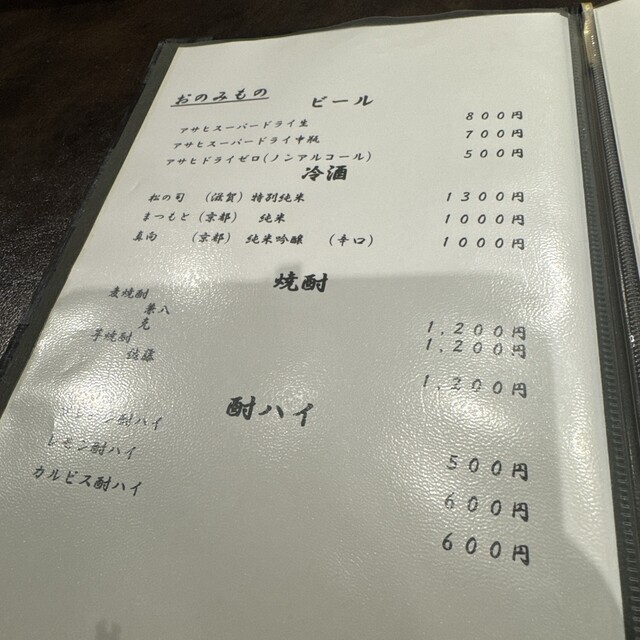 おのみもの
ビール
アサヒスーパードライ生 800円
アサヒスーパードライ中瓶 700円
アサヒドライゼロ(ノンアルコール) 500円
冷酒
松の司 (滋賀) 特別純米 1300円
まつもと (京都) 純米 1000円
真向 (京都) 純米吟醸 (辛口) 1000円
焼酎
麦焼酎
兼八 1,200円
兎 1,200円
芋焼酎
佐藤 1,200円
酎ハイ
酎ハイ 500円
レモン酎ハイ 600円
カルピス酎ハイ 600円